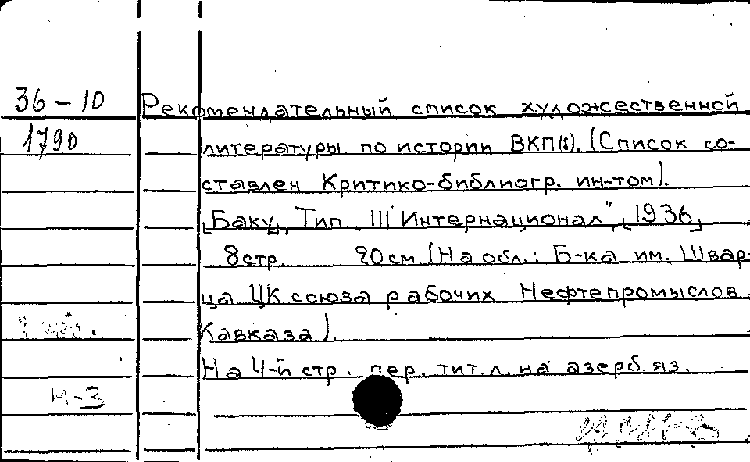 36-10 Рекомендательный список художественной
1790 литературы по истории ВКП(б). (Список со-
ставлен Критико-библиогр. ин-том).
[Баку], Тип "III Интернационал", [1936]
8 стр. 20 см (На обл.: Б-ка им. Швар-
ца ЦК союза рабочих Нефтепромыслов
Кавказа).
На 4-й стр. пер. тит. л. на азерб. яз.
н-3